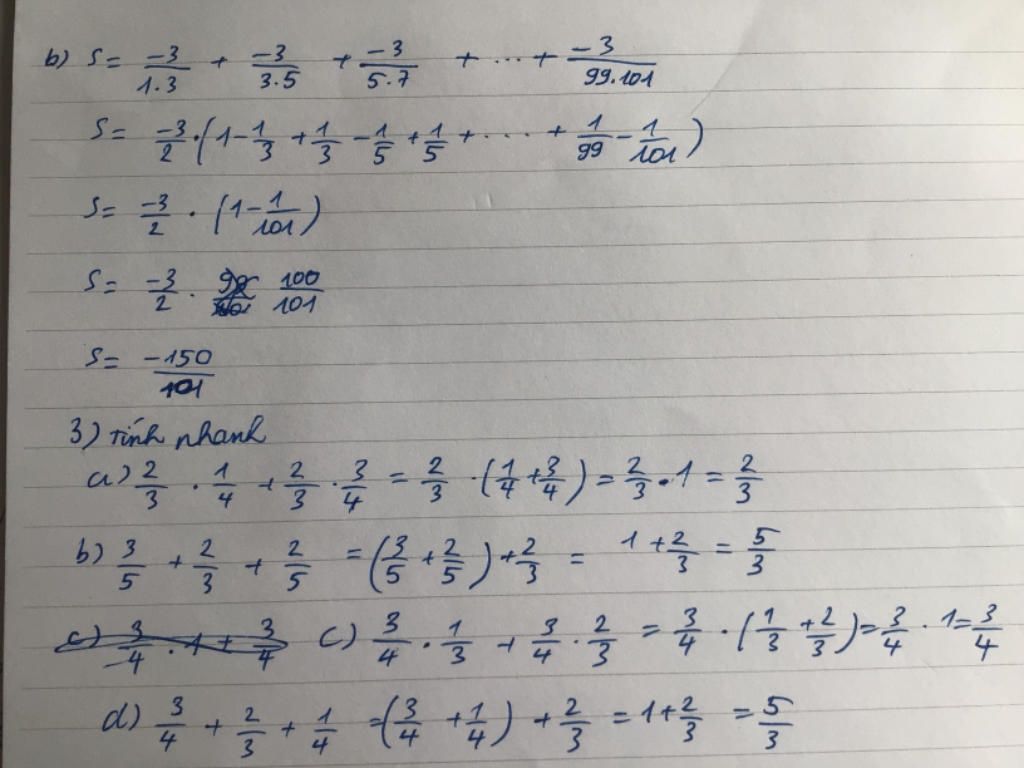 b) S = -3/1.3 + -3/3.5 + -3/5.7 + ... + -3/99.101
S = -3/2 . (1 - 1/3 + 1/3 - 1/5 + 1/5 + .... + 1/99 - 1/101)
S = -3/2 . (1 - 1/101)
S = -3/2 . 100/101
S = -150/101
3) Tính nhanh
a) 2/3 . 1/4 + 2/3 . 3/4 = 2/3 . (1/4 + 3/4) = 2/3 . 1 = 2/3
b) 3/5 + 2/3 + 2/5 = (3/5 + 2/5) + 2/3 = 1 + 2/3 = 5/3
c) 3/4 . 1 + 3/4 c) 3/4 . 1/3 + 3/4 . 2/3 = 3/4 . (1/3 + 2/3) = 3/4 . 1 = 3/4
d) 3/4 + 2/3 + 1/4 = (3/4 + 1/4) + 2/3 = 1 + 2/3 = 5/3